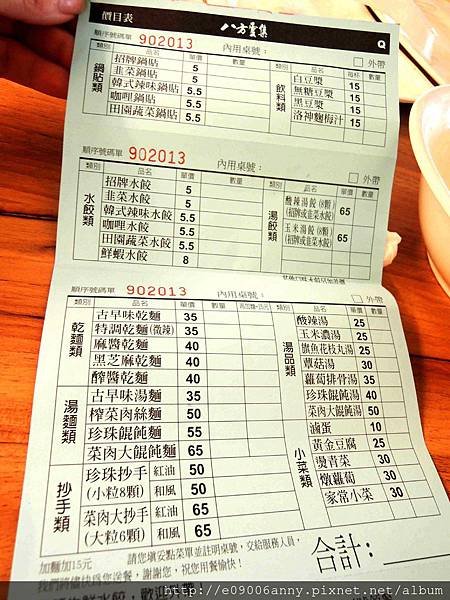 價目表
八方雲集
Q
順序號碼單 902013 內用桌號: 外帶
類別 品名 單價 數量
鍋貼類
招牌鍋貼 5
韭菜鍋貼 5
韓式辣味鍋貼 5.5
咖哩鍋貼 5.5
田園蔬菜鍋貼 5.5
類別 品名 每杯 數量
飲料類
白豆漿 15
無糖豆漿 15
黑豆漿 15
洛神麴梅汁 15
順序號碼單 902013 內用桌號: 外帶
類別 品名 單價 數量
水餃類
招牌水餃 5
韭菜水餃 5
韓式辣味水餃 5.5
咖哩水餃 5.5
田園蔬菜水餃 5.5
鮮蝦水餃 8
類別 品名 單價 數量
湯餃類
酸辣湯餃(8顆)
(招牌或韭菜水餃) 65
玉米湯餃(8顆)
(招牌或韭菜水餃) 65
順序號碼單 902013 內用桌號: 外帶
類別 品名 單價 數量
乾麵類
古早味乾麵 35
特調乾麵(微辣) 35
麻醬乾麵 40
黑芝麻乾麵 40
醡醬乾麵 40
湯麵類
古早味湯麵 35
榨菜肉絲麵 50
珍珠餛飩麵 55
菜肉大餛飩麵 65
抄手類
珍珠抄手 紅油 50
(小粒8顆) 和風 50
菜肉大抄手 紅油 65
(大粒6顆) 和風 65
類別 品名 單價 數量
湯品類
酸辣湯 25
玉米濃湯 25
旗魚花枝丸湯 25
蕈菇湯 30
蘿蔔排骨湯 35
珍珠餛飩湯 40
菜肉大餛飩湯 50
小菜類
滷蛋 10
黃金豆腐 25
燙青菜 30
燉蘿蔔 30
家常小菜 30
加麵加15元 請您填妥點菜單並註明桌號,交給服務人員,
我們將儘快為您送餐,謝謝您,祝您用餐愉快!
合計:
http://e09006anny.pixnet.net/album